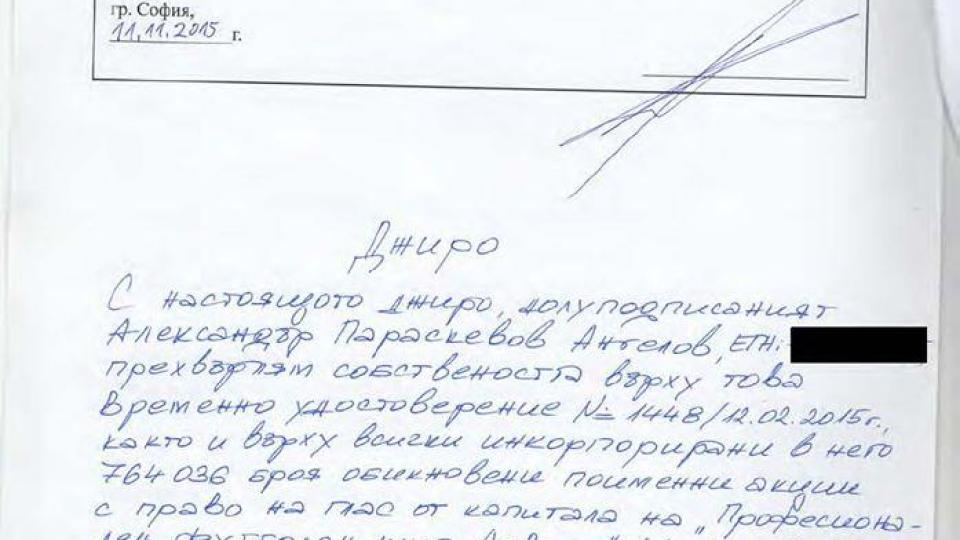 гр. София,
11.11.2015 г.
Джиро
С настоящото джиро, долуподписаният
Александър Параскевов Ангелов, ЕГН:
прехвърлям собствеността върху това
Временно удостоверение № 1448/12.02.2015г.,
както и върху всички инкорпорирани в него
764 036 броя обикновени поименни акции
с право на глас от капитала на „Професиона-
лен футболен клуб